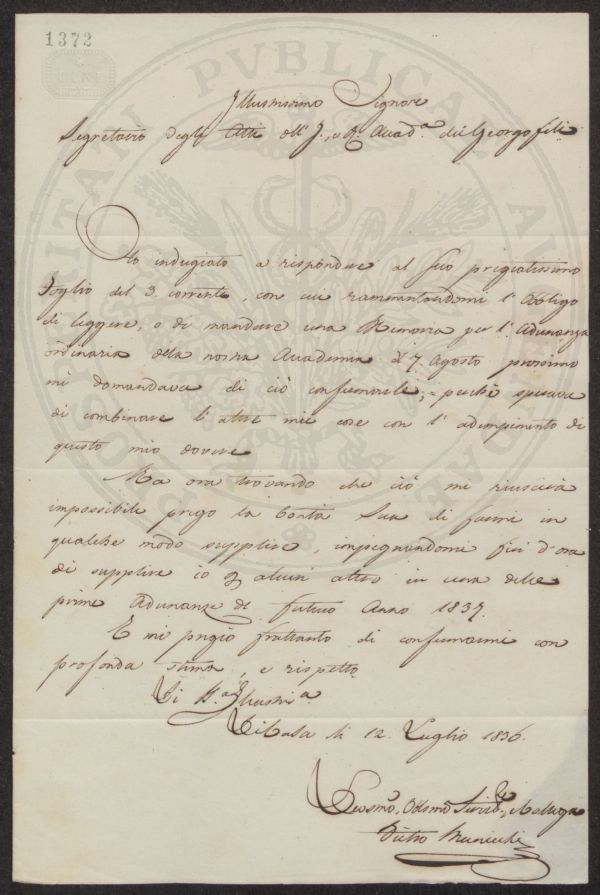 1372
Illustrissimo Signore
Segretario degli Atti dell'I., e R. Accad.a dei Georgofili
Ho indugiato a rispondere al Suo pregiatissimo
Foglio del 3. corrente, con cui rammentandomi l'Obbligo
di leggere, o di mandare una Memoria per l'Adunanza
ordinaria della nostra Accademia d 7. Agosto prossimo
mi domandava di ciò confermarle; perchè sperava
di combinare l'altre mie cose con l'adempimento di
questo mio dovere
Ma ora trovando che ciò mi riuscirà
impossibile prego la bontà Sua di farmi in
qualche modo supplire, impegnandomi fin d'ora
di supplire io p alcun altro in una delle
prime Adunanze del futuro Anno 1837.
E mi pregio frattanto di confermarmi con
profonda stima, e rispetto
Di V.a Illustris.a
Di Casa li 12. Luglio 1836.
Devosmo, Obbmo Servi.re, e Collega
Pietro
PVBLICA